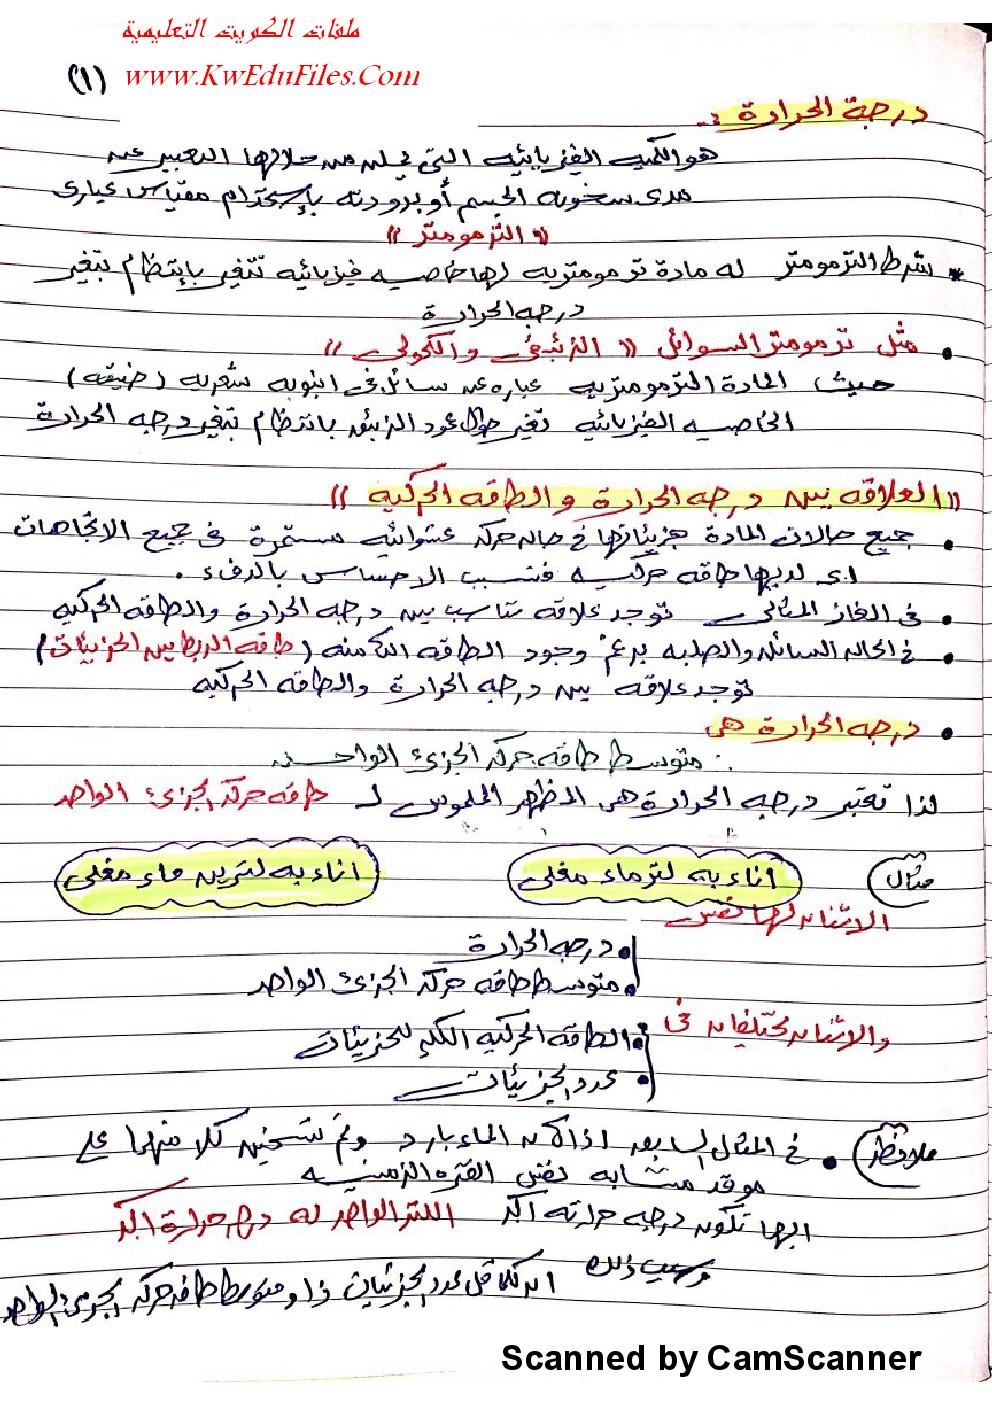 ملفات الكويت التعليمية
www.KwEduFiles.Com
(١)
درجة الحرارة :-
هو الكميه الفيزيائيه التى يمكن من خلالها التعبير عن
مدى سخونه الجسم أو برودته بإستخدام مقياس عيارى
" الترمومتر "
* شرط الترمومتر له مادة ترمومتريه لها خاصيه فيزيائيه تتغير بإنتظام بتغير
درجه الحرارة
• مثل ترمومتر السوائل " الزئبقى والكحولى "
حيث المادة الترمومتريه عباره عن سائل فى انبوبه شعريه ( ضيقه )
الخاصيه الفيزيائيه تغير طول عمود الزئبق بانتظام بتغير درجه الحرارة
" العلاقه بين درجه الحرارة والطاقه الحركيه "
• جميع حالات المادة جزيئاتها فى حاله حركه عشوائيه مستمرة فى جميع الاتجاهات
اى لديها طاقه حركيه فتسبب الاحساس بالدفء .
• فى الغاز المثالى توجد علاقه تناسب بين درجه الحرارة والطاقه الحركيه
• فى الحاله السائله والصلبه برغم وجود الطاقه الكامنه ( طاقه الربط بين الجزيئات )
توجد علاقه بين درجه الحرارة والطاقه الحركيه
• درجه الحرارة هى
متوسط طاقه حركه الجزئ الواحد
لذا تعتبر درجه الحرارة هى المظهر الملموس لـ طاقه حركه الجزئ الواحد
مثال
اناء به لتر ماء مغلى
اناء به لترين ماء مغلى
الاثنان لهما نفس
• درجه الحرارة
• متوسط طاقه حركه الجزئ الواحد
والاثنان مختلفان فى
• الطاقه الحركيه الكليه للجزيئات
• عدد الجزيئات
ملاحظه
• فى المثال السابق اذا كان الماء بارد وتم تسخين كلا منهما على
موقد مشابه نفس الفتره الزمنيه
ايهما تكون درجه حرارته اكبر اللتر الواحد له درجه حرارة اكبر
وسبب ذلك انه كلما قل عدد الجزيئات زاد متوسط طاقه حركه الجزئ الواحد
Scanned by CamScanner